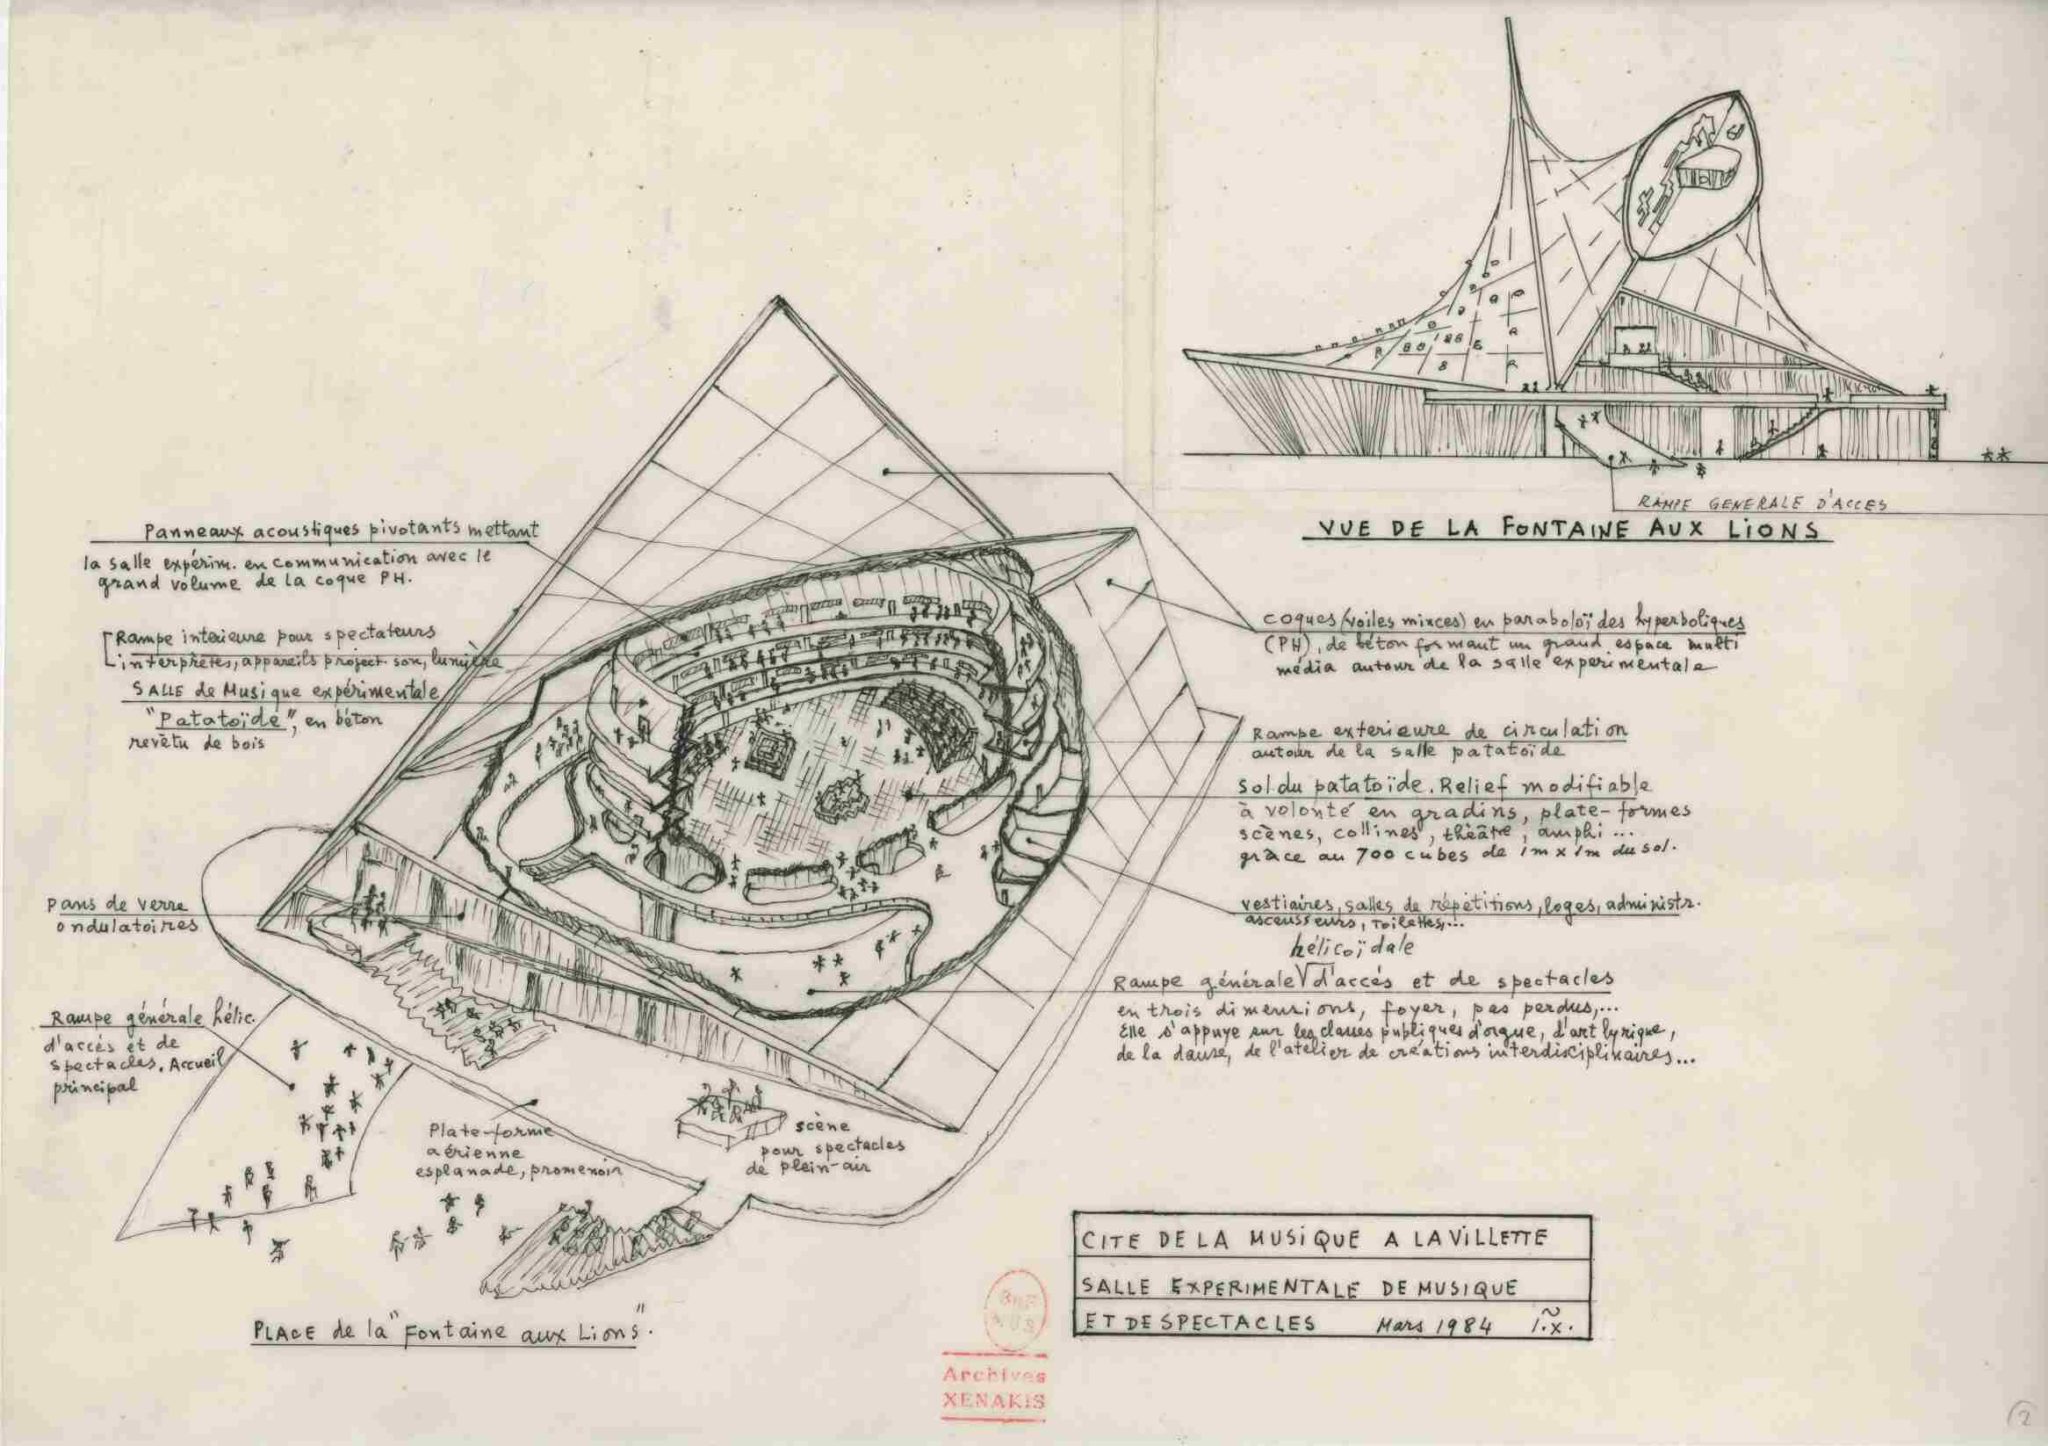 RAMPE GENERALE D'ACCES
VUE DE LA FONTAINE AUX LIONS
Panneaux acoustiques pivotants mettant
la salle expérim. en communication avec le
grand volume de la coque PH.
Rampe intérieure pour spectateurs
interprètes, appareils project. son, lumière
SALLE de Musique expérimentale
"Patatoïde", en béton
revêtu de bois
Pans de verre
ondulatoires
Rampe générale hélic.
d'accès et de
spectacles. Accueil
principal
Plate-forme
aérienne
esplanade, promenoir
scène
pour spectacles
de plein-air
PLACE de la "Fontaine aux Lions".
coques (voiles minces) en paraboloïdes hyperboliques
(PH), de béton formant un grand espace multi
média autour de la salle expérimentale
Rampe extérieure de circulation
autour de la salle patatoïde
Sol du patatoïde. Relief modifiable
à volonté en gradins, plate-formes
scènes, collines, théâtre, amphi...
grâce au 700 cubes de 1m x 1m du sol.
vestiaires, salles de répétitions, loges, administr.
ascenseurs, toilettes,...
hélicoïdale
Rampe générale d'accès et de spectacles
en trois dimensions, foyer, pas perdus,...
Elle s'appuye sur les classes publiques d'orgue, d'art lyrique,
de la danse, de l'atelier de créations interdisciplinaires...
CITE DE LA MUSIQUE A LA VILLETTE
SALLE EXPERIMENTALE DE MUSIQUE
ET DE SPECTACLES Mars 1984 I.X.
Archives
XENAKIS
2